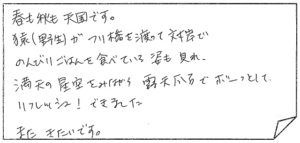 春も秋も天国です。
猿(野生)がつり橋を渡って対岸で
のんびりごはんを食べている姿も見れ、
満天の星空をみながら露天風呂でボーっとして
リフレッシュ!できました
また きたいです。